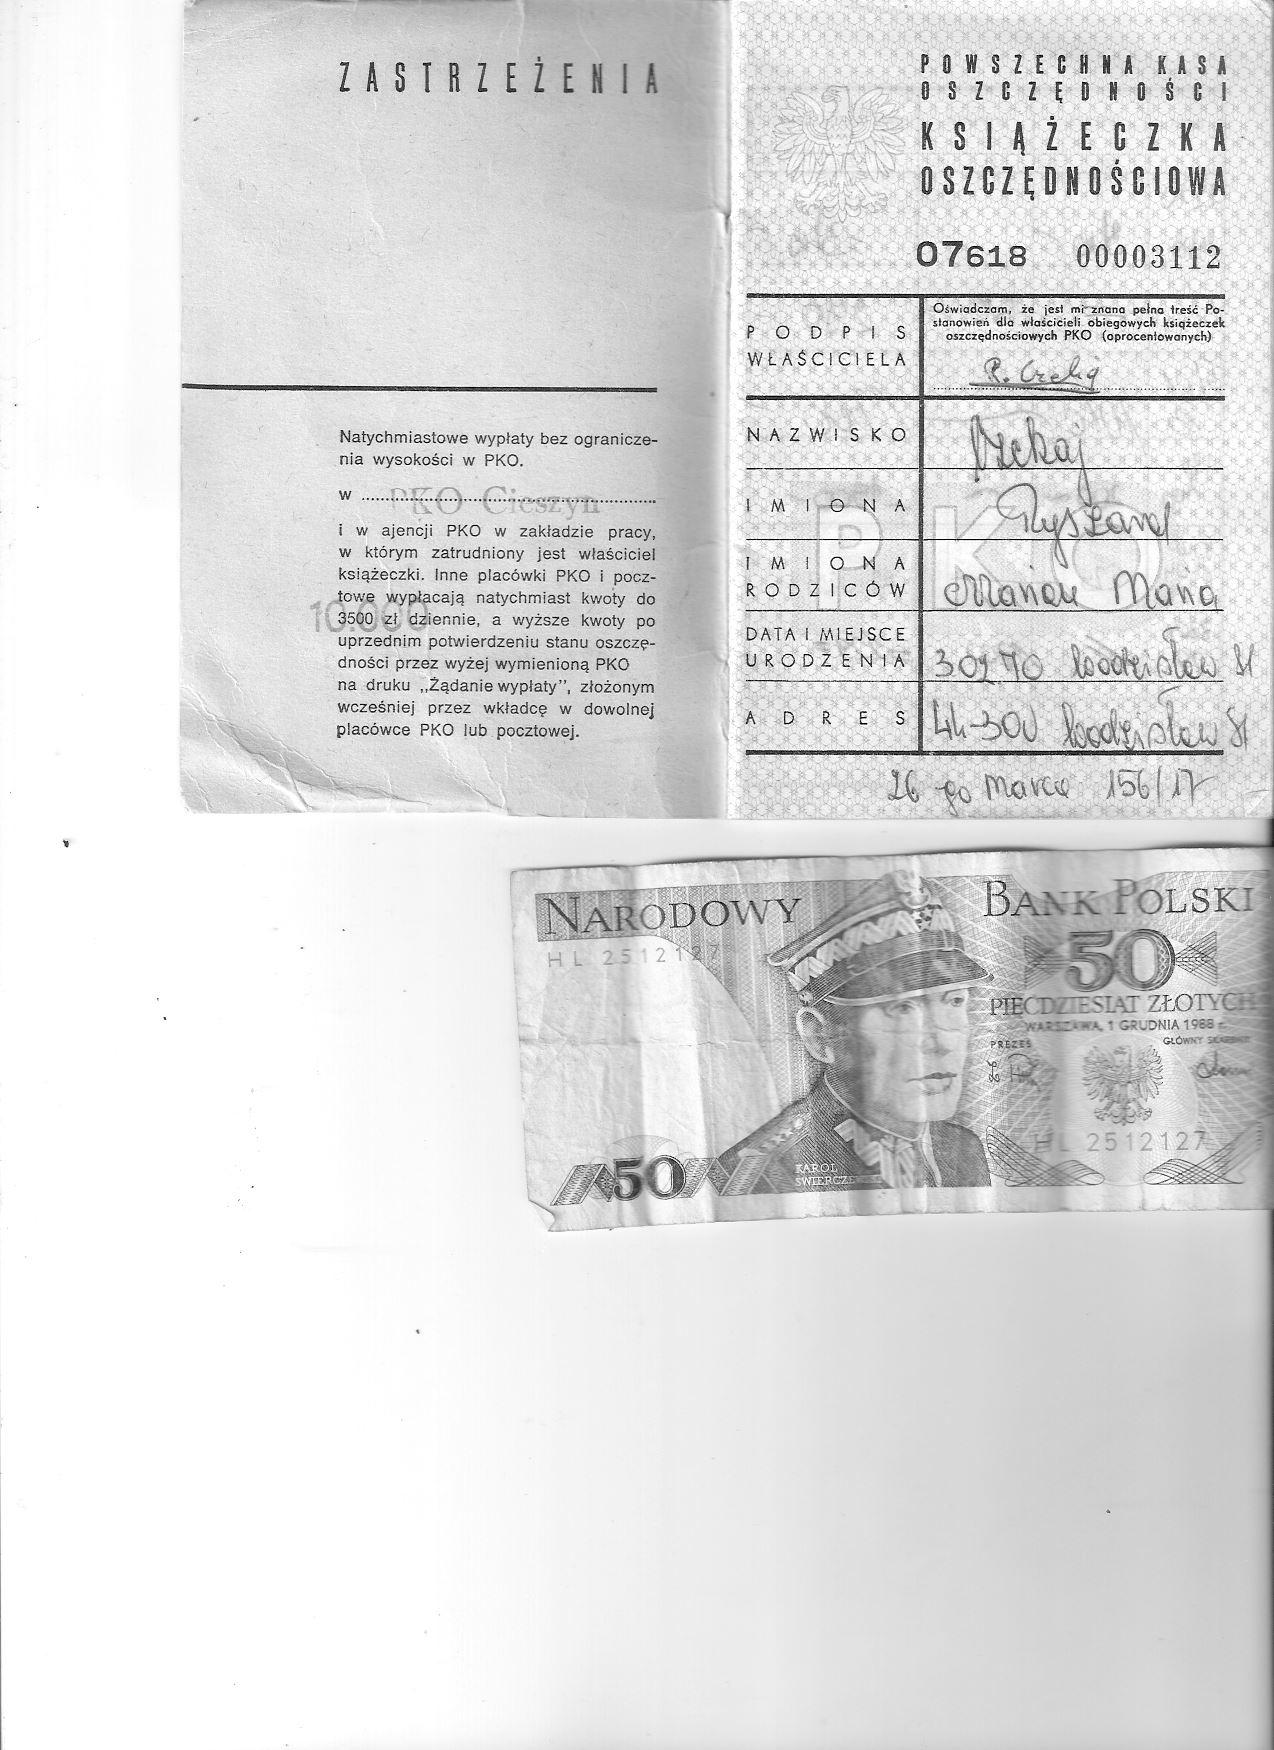 ZASTRZEŻENIA
Natychmiastowe wypłaty bez ogranicze-
nia wysokości w PKO.
w PKO Cieszyn
i w ajencji PKO w zakładzie pracy,
w którym zatrudniony jest właściciel
książeczki. Inne placówki PKO i pocz-
towe wypłacają natychmiast kwoty do
10.000
3500 zł dziennie, a wyższe kwoty po
uprzednim potwierdzeniu stanu oszczę-
dności przez wyżej wymienioną PKO
na druku „Żądanie wypłaty”, złożonym
wcześniej przez wkładcę w dowolnej
placówce PKO lub pocztowej.
POWSZECHNA KASA
OSZCZĘDNOŚCI
KSIĄŻECZKA
OSZCZĘDNOŚCIOWA
07618 00003112
PODPIS
WŁAŚCICIELA
Oświadczam, że jest mi znana pełna treść Po-
stanowień dla właścicieli obiegowych książeczek
oszczędnościowych PKO (oprocentowanych)
NAZWISKO
IMIONA Ryszard
PKO
IMIONA
RODZICÓW Marian Maria
DATA I MIEJSCE
URODZENIA Wodzisław Śl
ADRES 44-300 Wodzisław Śl
26 go Marca 156/17
NARODOWY BANK POLSKI
HL 2512127
50
PIĘĆDZIESIĄT ZŁOTYCH
WARSZAWA, 1 GRUDNIA 1988 r.
PREZES GŁÓWNY
HL 2512127
50
KAROL